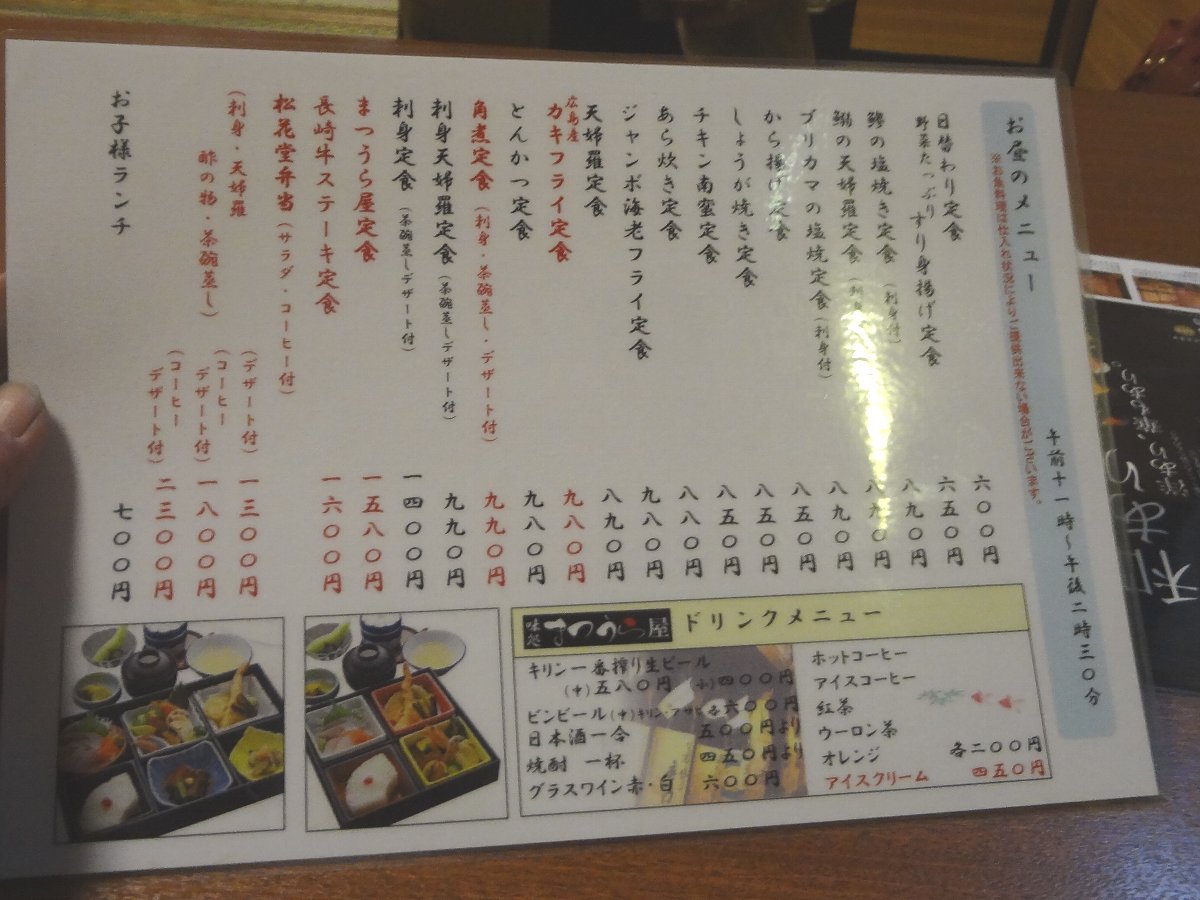 お昼のメニュー 午前十一時〜午後二時三〇分
※お魚料理は仕入れ状況によりご提供出来ない場合がございます。
日替わり定食 六〇〇円
野菜たっぷり すり身揚げ定食 六五〇円
の塩焼き定食(刺身付) 九〇円
の天婦羅定食(刺身 八九〇円
ブリカマの塩焼定食(刺身付) 八九〇円
から揚げ定食 八五〇円
しょうが焼き定食 八五〇円
チキン南蛮定食 八五〇円
あら炊き定食 八八〇円
ジャンボ海老フライ定食 九八〇円
天婦羅定食 八九〇円
広島産カキフライ定食 九八〇円
とんかつ定食 九八〇円
角煮定食(刺身・茶碗蒸し・デザート付) 九九〇円
刺身天婦羅定食(茶碗蒸しデザート付) 九九〇円
刺身定食(茶碗蒸しデザート付) 一四〇〇円
まつうら屋定食 一五八〇円
長崎牛ステーキ定食(サラダ・コーヒー付) 一六〇〇円
松花堂弁当
(刺身・天婦羅
酢の物・茶碗蒸し)
(デザート付) 一三〇〇円
(コーヒー
デザート付) 一八〇〇円
(コーヒー
デザート付) 二三〇〇円
お子様ランチ 七〇〇円
味処 まつうら屋 ドリンクメニュー
キリン一番搾り生ビール
(中)五八〇円 (小)四〇〇円
ビンビール(中)キリン・アサヒ各六〇〇円
日本酒一合 五〇〇円より
焼酎 一杯 四五〇円より
グラスワイン赤・白 六〇〇円
ホットコーヒー
アイスコーヒー
紅茶
ウーロン茶
オレンジ 各二〇〇円
アイスクリーム 四五〇円